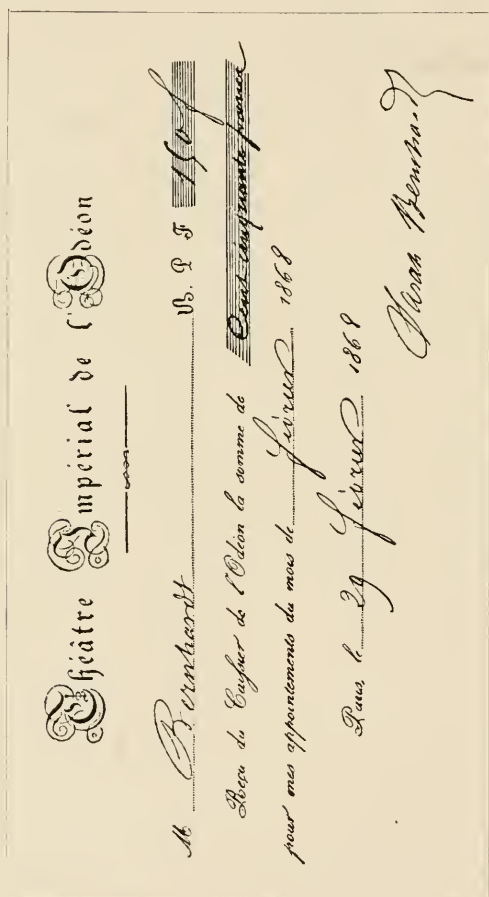 Théâtre Impérial de l'Odéon
M Bernhardt B. P. F 150 f
Reçu du Caissier de l'Odéon la somme de Cent cinquante francs
pour mes appointements du mois de février 1868
Paris, le 29 février 1868
Sarah Bernhardt